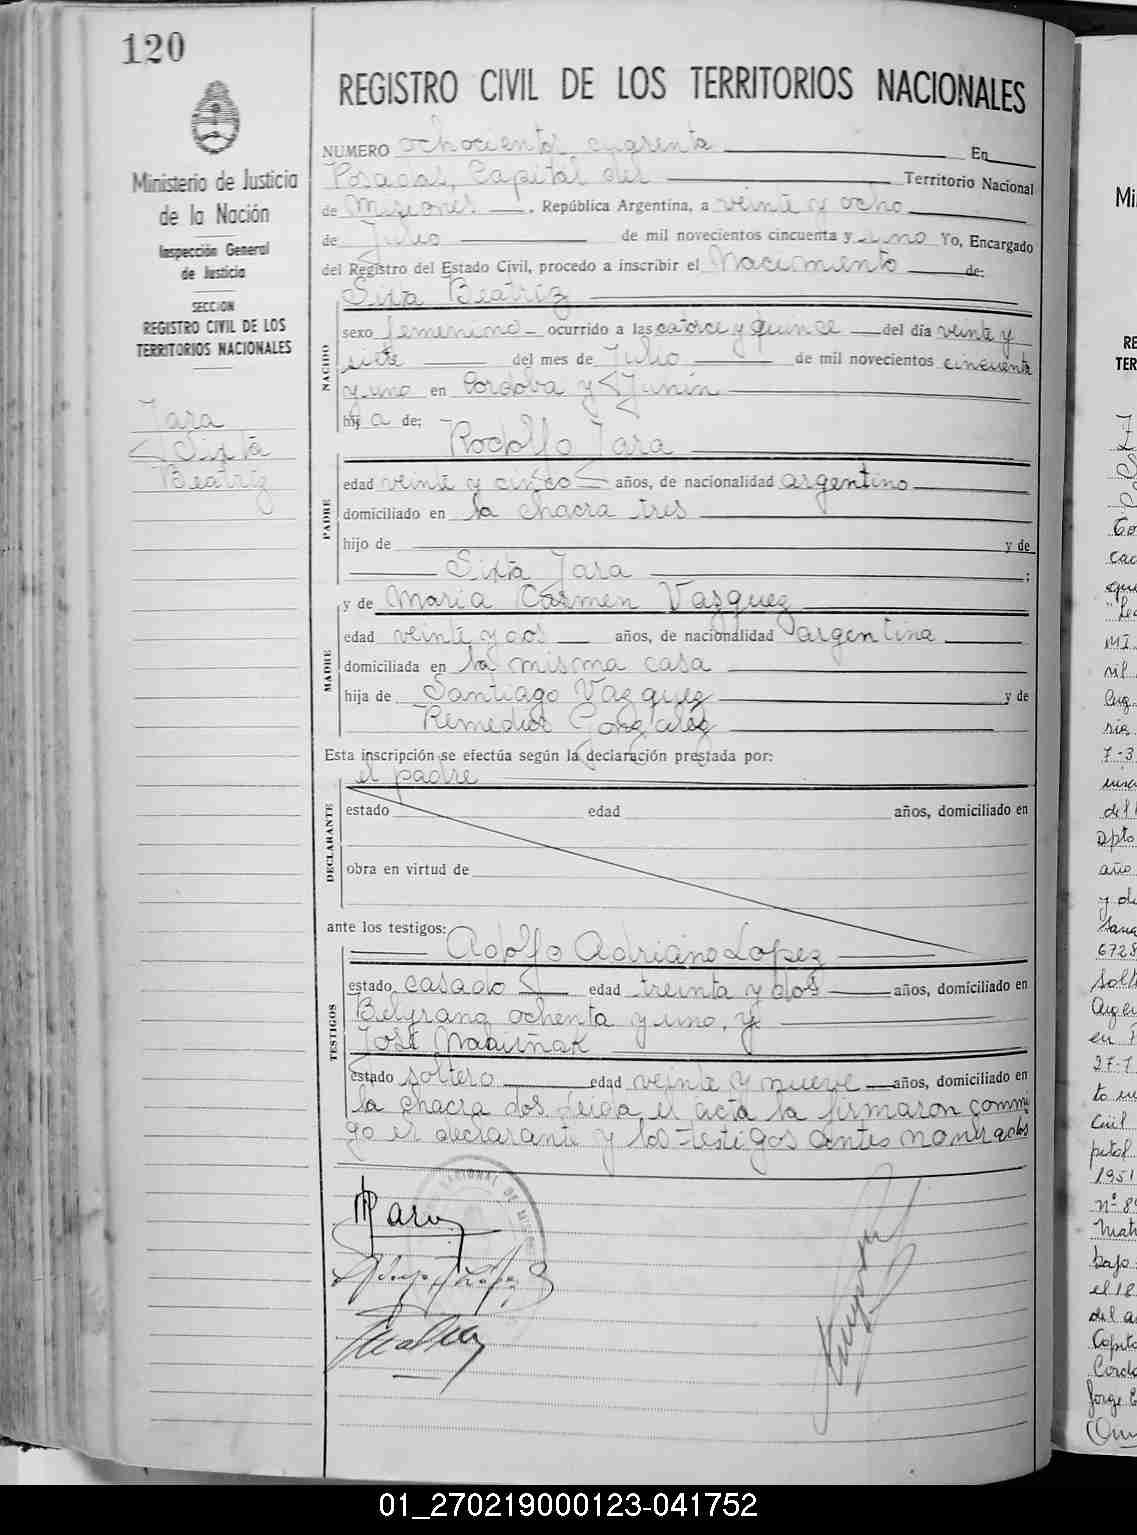 120
REGISTRO CIVIL DE LOS TERRITORIOS NACIONALES
Ministerio de Justicia
de la Nación
Inspección General
de Justicia
SECCION
REGISTRO CIVIL DE LOS
TERRITORIOS NACIONALES
Jara
Sixta
Beatriz
NUMERO ochocientos cuarenta En
Posadas, Capital del Territorio Nacional
de Misiones . República Argentina, a veinte y ocho
de Julio de mil novecientos cincuenta y uno Yo, Encargado
del Registro del Estado Civil, procedo a inscribir el Nacimiento de:
Sixta Beatriz
NACIDO
sexo femenino ocurrido a las catorce y quince del día veinte y
siete del mes de Julio de mil novecientos cincuenta
y uno en Cordova y Junin
hij a de:
Rodolfo Jara
PADRE
edad veinte y cinco años, de nacionalidad argentino
domiciliado en la chacra tres
hijo de y de
Sixta Jara ;
y de Maria Carmen Vazquez
MADRE
edad veinte y dos años, de nacionalidad argentina
domiciliada en la misma casa
hija de Santiago Vazquez y de
Remedios Gonzalez
Esta inscripción se efectúa según la declaración prestada por:
el padre
DECLARANTE
estado edad años, domiciliado en
obra en virtud de
ante los testigos:
Adolfo Adriano Lopez
TESTIGOS
estado casado edad treinta y dos años, domiciliado en
Belgrano ochenta y uno, y
José
estado soltero edad veinte y nueve años, domiciliado en
la chacra dos. Leida el acta la firmaron conmi
go el declarante y los testigos antes nombrados
01_270219000123-041752